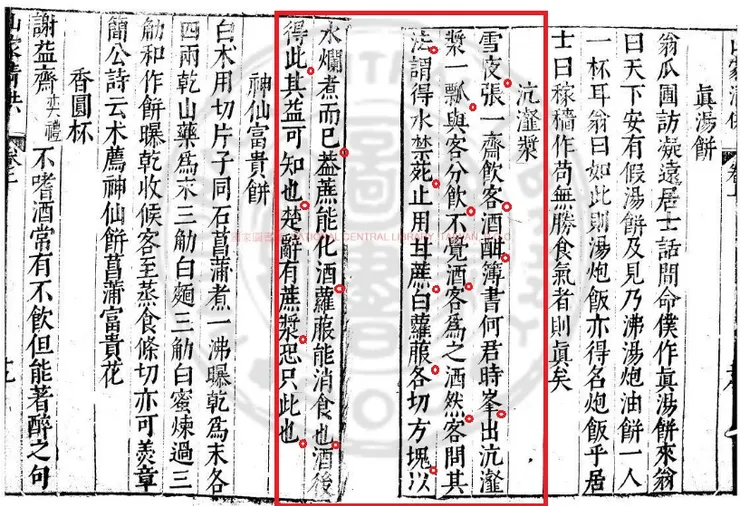 眞湯餅
翁瓜圃訪凝遠居士話間命僕作眞湯餅來翁
曰天下安有假湯餅及見乃沸湯炮油餅一人
一杯耳翁曰如此則湯炮飯亦得名炮飯乎居
士曰稼穡作苟無勝食氣者則眞矣
沆瀣漿
雪夜張一齋飲客酒酣簿書何君時峯出沆瀣
漿一瓢與客分飲不覺酒客爲之洒然客問其
法謂得水禁苑止用甘蔗白蘿菔各切方塊以
水爛煮而已葢蔗能化酒蘿菔能消食也酒後
得此其益可知也楚辭有蔗漿恐只此也
神仙富貴餅
白术用切片子同石菖蒲煮一沸曝乾爲末各
四兩乾山藥爲末三觔白麵三觔白蜜煉過三
觔和作餅曝乾收候客至蒸食條切亦可羨章
簡公詩云术薦神仙餅菖蒲富貴花
香圓杯
謝益齋奕禮不嗜酒常有不飲但能著醉之句
山家清供